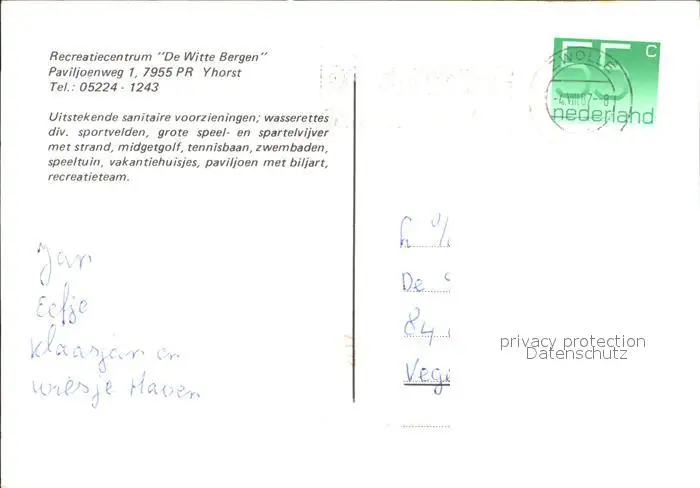 Recreatiecentrum "De Witte Bergen"
Paviljoenweg 1, 7955 PR Yhorst
Tel.: 05224 - 1243
Uitstekende sanitaire voorzieningen; wasserettes
div. sportvelden, grote speel- en spartelvijver
met strand, midgetgolf, tennisbaan, zwembaden,
speeltuin, vakantiehuisjes, paviljoen met biljart,
recreatieteam.
Jan
Eefje
Klaasjan en
Wiesje Haven
55 c
nederland
ZWOLLE
De
84
Vege
privacy protection
Datenschutz